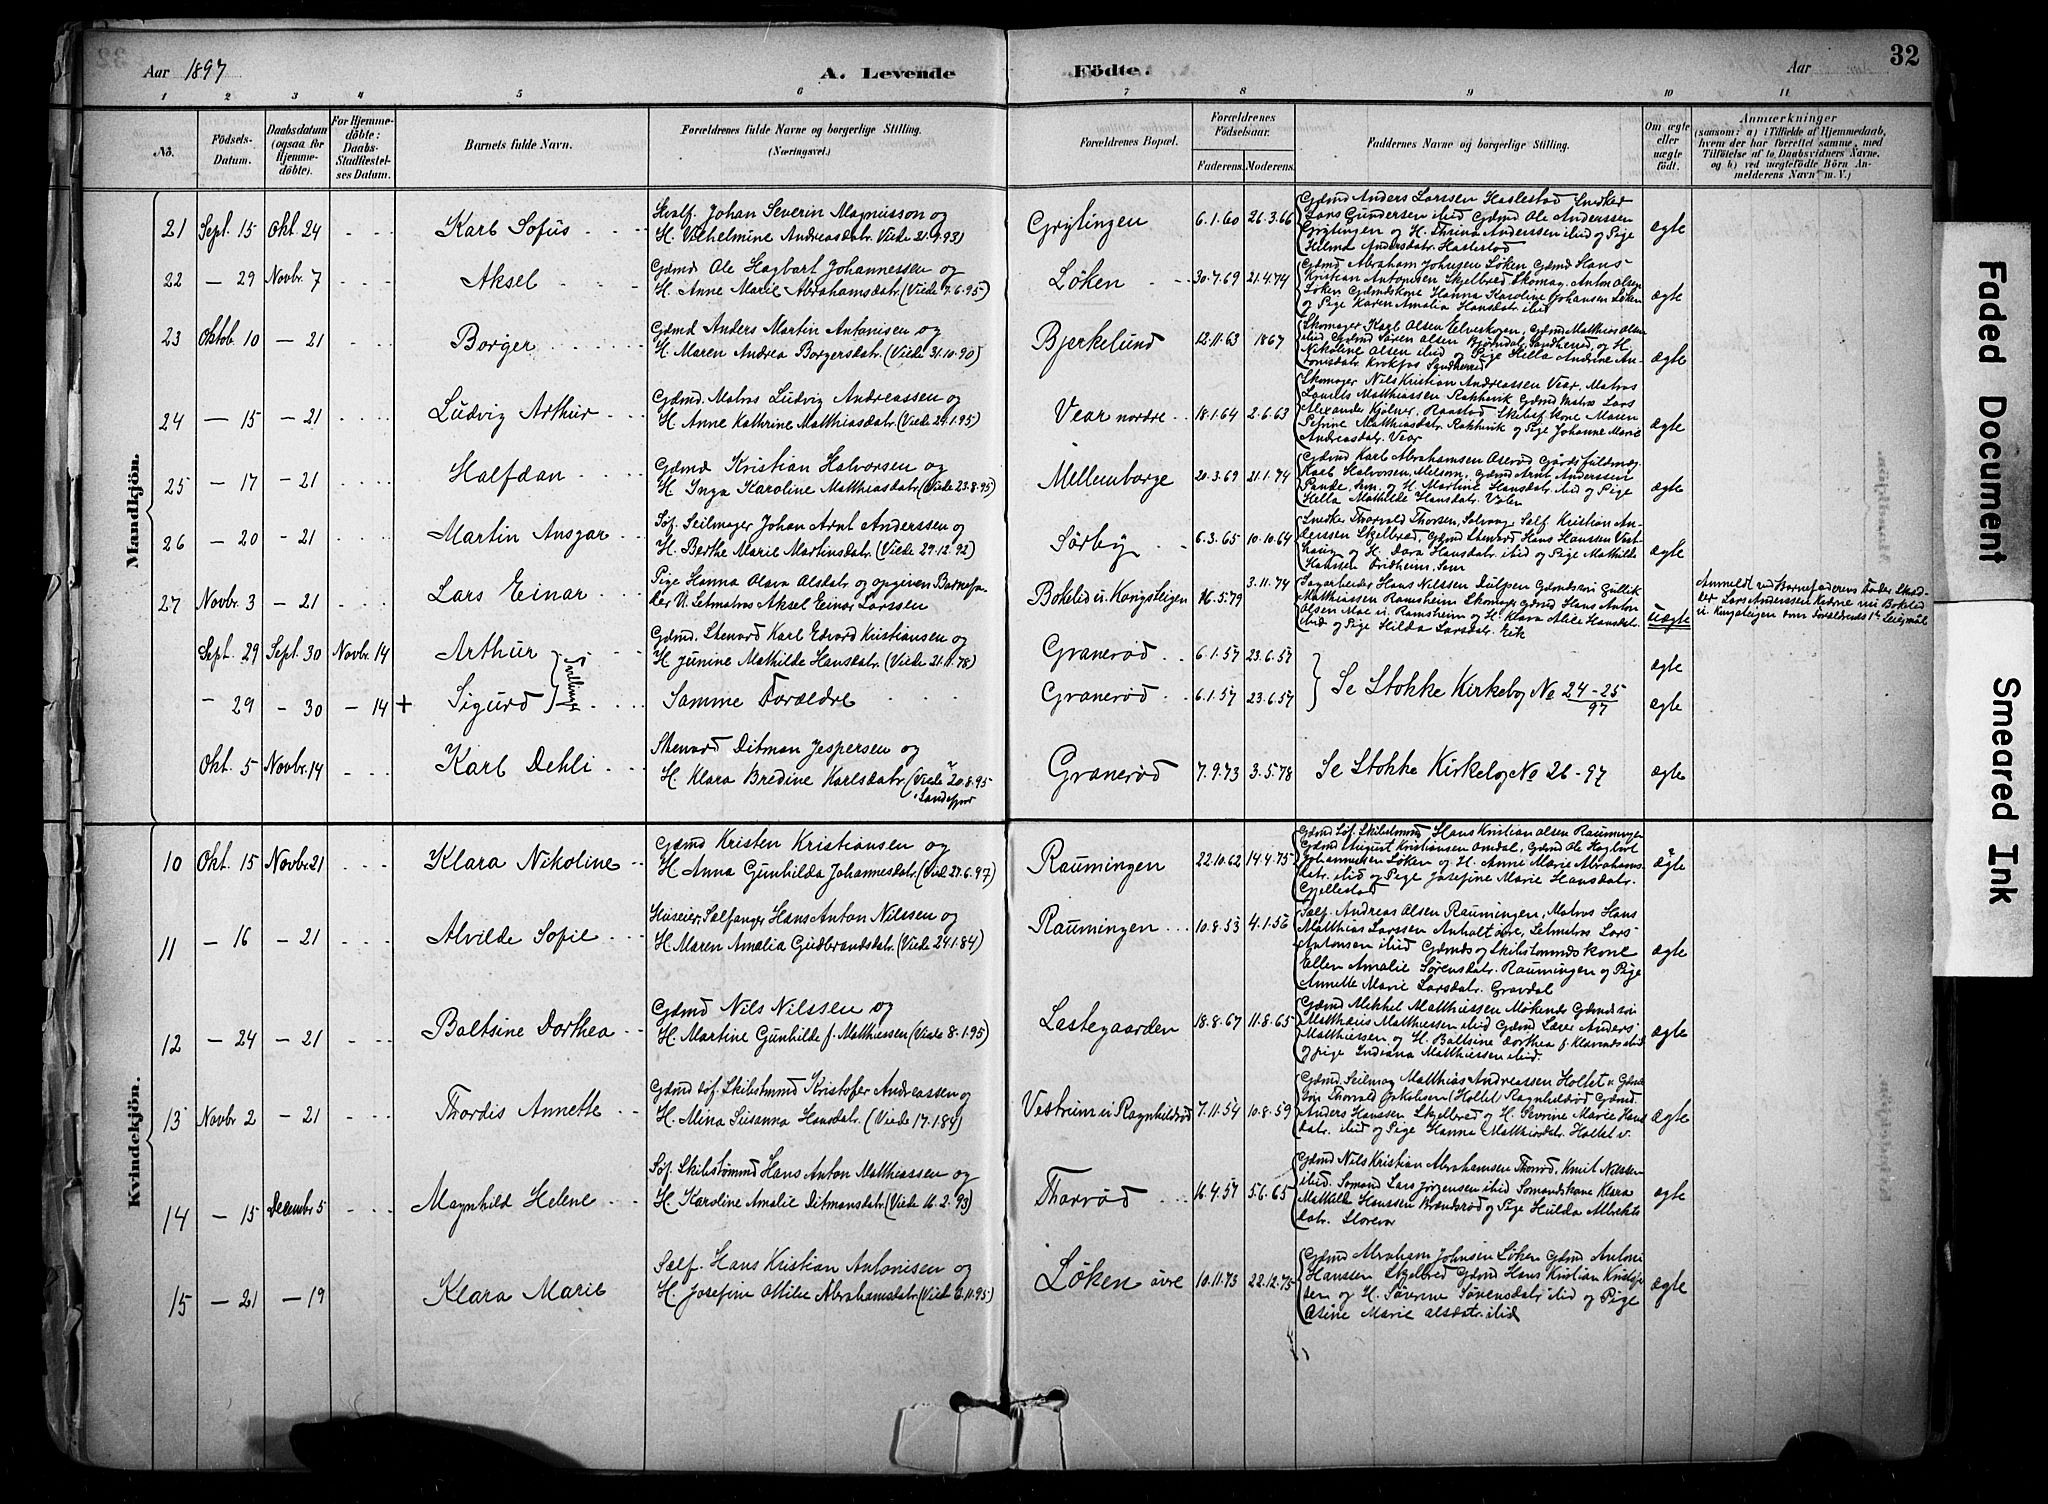 32
Aar 1897
A. Levende
Födte.
Aar
1 2 3 4 5 6 7 8 9 10 11
No.
Födsels-Datum.
Daabsdatum (ogsaa for Hjemmedöbte).
For Hjemmedöbte: Daabs-Stadfæstelses Datum.
Barnets fulde Navn.
Forældrenes fulde Navne og borgerlige Stilling.
(Næringsvei.)
Forældrenes Bopæl.
Forældrenes Födselsaar.
Faderens. Moderens.
Faddernes Navne og borgerlige Stilling.
Om ægte eller uægte födt.
Anmærkninger
(saasom: a) i Tilfælde af Hjemmedaab,
hvem der har forrettet samme, med
Tilföielse af to Daabsvidners Navne,
og b) ved uægtefödte Börn An-
melderens Navn m. V.)
Mandkjön.
21 Sept. 15 Okt. 24 Karl Sofus
Johan Severin Magnisson og
H. Vilhelmine Andreasdatr. Viede 21.9.93)
Grytingen 6.1.60 26.3.66
Gdmd Anders Larssen Haslestad
Lars Gundersen ibid Gdmd Ole Anderssen
Grytingen og H. Thrina Anderssen ibid og Pige
Helma Andersdatr. Haslestad
ægte
22 — 29 Novbr. 7 Aksel
Gdmd Ole Hagbart Johannessen og
H. Anne Marie Abrahamsdatr. (Viede 7.6.95)
Löken 30.7.69 21.4.74
Gdmd Abraham Johnsen Löken Gdmd Hans
Kristian Antonisen Skjelbred Skomag. Anton Olsen
Löken Gdmdskone Hanna Karoline Johansen Löken
og Pige Karen Amalia Hansdatr ibid
ægte
23 Oktob. 10 — 21 Borger
Gdmd Anders Martin Antonisen og
H. Maren Andrea Borgersdatr. (Viede 31.10.90)
Bjerkelund 12.11.63 1867
Skomager Karl Olsen Elverhogen, Gdmd Matthias Olsen
ibid Gdmd Sören Olsen Bjørndal Sandherred, og H.
Nikoline Olsen ibid og Pige Hella Andrine An-
tonisdatr. Krokfos Sandherred
ægte
24 — 15 — 21 Ludvig Arthur
Gdmd. Matros Ludvig Andreassen og
H. Anne Kathrine Matthiasdatr. (Viede 29.1.95)
Vear nordre 18.1.64 2.6.63
Skomager Nils Kristian Andreassen Vear, Matros
Laurits Matthiassen Rakkevik Gdmd Matros Lars
Alexander Kjölner, Raastad Skibsf. Kone Maren
Petrine Matthiasdatr. Rakkevik og Pige Johanne Marie
Andreasdatr. Vear
ægte
25 — 17 — 21 Halfdan
Gdmd Kristian Halvorsen og
H. Inga Karoline Matthiasdatr. (Viede 23.8.95)
Mellemborge 20.3.69 21.1.74
Gdmd Karl Abrahamsen Aserød Gårdsfuldmæg.
Karl Halvorsen, Melsom, Gdmd Arnt Anderssen
Pande, Sem og H. Martine Hansdatr. ibid og Pige
Hella Mathilde Hansdatr. Valen
ægte
26 — 20 — 21 Martin Ansgar
Søf. Seilmager Johan Arnt Anderssen og
H. Berthe Marie Martinsdatr. (Viede 27.12.92)
Sörby 6.3.65 10.10.64
Snedker Thorvald Thorsen, Solvang, Self. Kristian An-
derssen Skjelbred, Gdmd Steward Hans Hanssen Vest-
haug og H. Dora Hansdatr. ibid og Pige Mathilde
Hanssen Sem
ægte
27 Novbr. 3 — 21 Lars Einar
Pige Hanna Olava Olsdatr. og opgiven Barnefa-
der U. Letmatros Aksel Einar Larssen
Bokelid u. Kongsteigen 16.5.79 3.11.74
Sagarbeider Hans Nilssen Dulpen Gdmdssön Gullik
Matthiassen Ramsheim Skomag. Gdmd Hans Anton
Olsen Moe u. Ramsheim og H. Klara Alice Hansdatr.
ibid og Pige Hilda Larsdatr. Eik
uægte
Anmeldt ved Barnefaderens Fader
Lars Anderssen Bokelid
u. Kongsteigen som Forældrenes 1ste Leiermål
Sept. 29 Sept. 30 Novbr. 14 Arthur
Gdmd. Steward Karl Edvard Kristiansen og
H. Junine Mathilde Hansdatr. (Viede 21.11.78)
Granerød 6.1.57 23.6.57
ægte
Tvillinger
— 29 — 30 — 14 + Sigurd
Samme Forældre
Granerød 6.1.57 23.6.57
Se Stokke Kirkebog No 24-25/97
ægte
Okt. 5 Novbr. 14 Karl Dehli
Steward Ditman Jespersen og
H. Klara Bredine Karlsdatr. (Viede 20.8.95
i Sandefjord
Granerød 7.9.73 3.5.78
Se Stokke Kirkebog No 26-97
ægte
Kvindekjön.
10 Okt. 15 Novbr. 21 Klara Nikoline
Gdmd Kristen Kristiansen og
H. Anna Gunhilda Johannesdatr. (Viede 27.6.97)
Raumingen 22.10.62 14.4.75
Gdmd Søf. Skibstmmd Hans Kristian Olsen Raumingen
Gdmd August Kristiansen Omdal, Gdmd Ole Hagbart
Johannessen Löken og H. Anne Marie Abrahams-
datr. ibid og Pige Josefine Marie Hansdatr.
Gjellestad
ægte
11 — 16 — 21 Alvilde Sofie
Huseier, Sælfanger Hans Anton Nilssen og
H. Maren Amalia Gudbrandsdatr. (Viede 24.1.84)
Raumingen 10.8.53 4.1.56
Sælf. Andreas Olsen Raumingen, Matros Hans
Matthias Larssen Anholt övre, Letmatros Lars
Antonsen ibid Gdmds og Skibstømmdskone
Ellen Amalie Sørensdatr. Raumingen og Pige
Annette Marie Larsdatr. Gravdal
ægte
12 — 24 — 21 Baltsine Dorthea
Gdmd Nils Nilssen og
H. Martine Gunhilde f. Matthiessen (Viede 8.1.95)
Lastegaarden 18.8.67 11.8.65
Gdmd Mikkel Matthiessen Møkenes Gdmdssön
Matthæus Matthiessen ibid Gdmd Laver Anders
Matthiessen og H. Baltsine Dorthea f. Klavenes ibid
og pige Indiana Matthiessen ibid.
ægte
13 Novbr. 2 — 21 Thordis Annette
Gdmd Søf. Skibstmmd Kristofer Andreassen og
H. Mina Susanna Hansdatr. (Viede 17.1.84)
Vestrum u. Ragnhildrød 7.11.54 10.8.59
Gdmd. Seilmag Matthias Andreassen Holtet v. Gdmds-
sön Thorvald Jakobsen (Holtet) Ragnhildrød Gdmd.
Anders Hanssen Skjelbred og H. Severine Marie Hans-
datr. ibid og Pige Hanna Matthisdatr. Holtet v.
ægte
14 — 15 December 5 Magnhild Helene
Søf. Skibstømmd Hans Anton Matthiassen og
H. Karoline Amalie Ditmansdatr. (Viede 16.2.93)
Thorrød 16.4.57 5.6.65
Gdmd Nils Kristian Abrahamsen Thorrød, Knut Nilssen
ibid. Sømand Lars Jörgensen ibid Sømandskone Klara
Mathilde Hanssen Brændsrød og Pige Hulda Albrekts-
datr. Storevar
ægte
15 — 21 — 19 Klara Marie
Sælf. Hans Kristian Antonisen og
H. Josefine Otilie Abrahamsdatr. (Viede 6.11.95)
Löken övre 10.11.73 22.12.75
Gdmd Abraham Johnsen Löken Gdmd Antoni
Hanssen Skjelbred Gdmd Hans Kristian Kristof-
sen og H. Severine Sørensdatr. ibid og Pige
Osine Marie Olsdatr. ibid
ægte
Faded Document
Smeared Ink